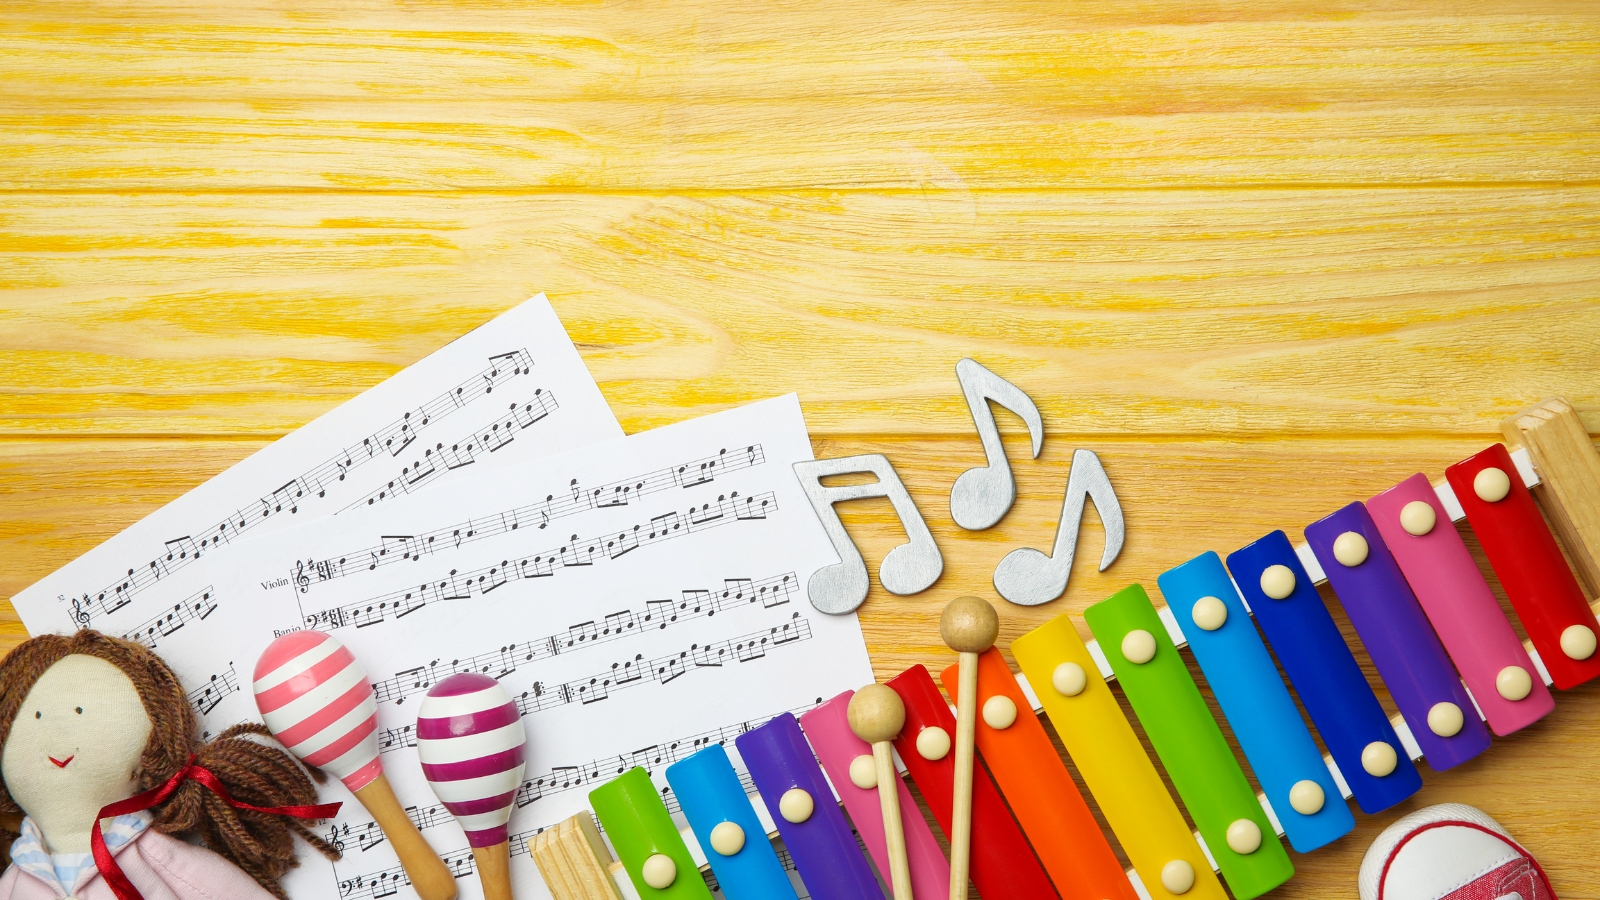 32
Violin
Banjo
12